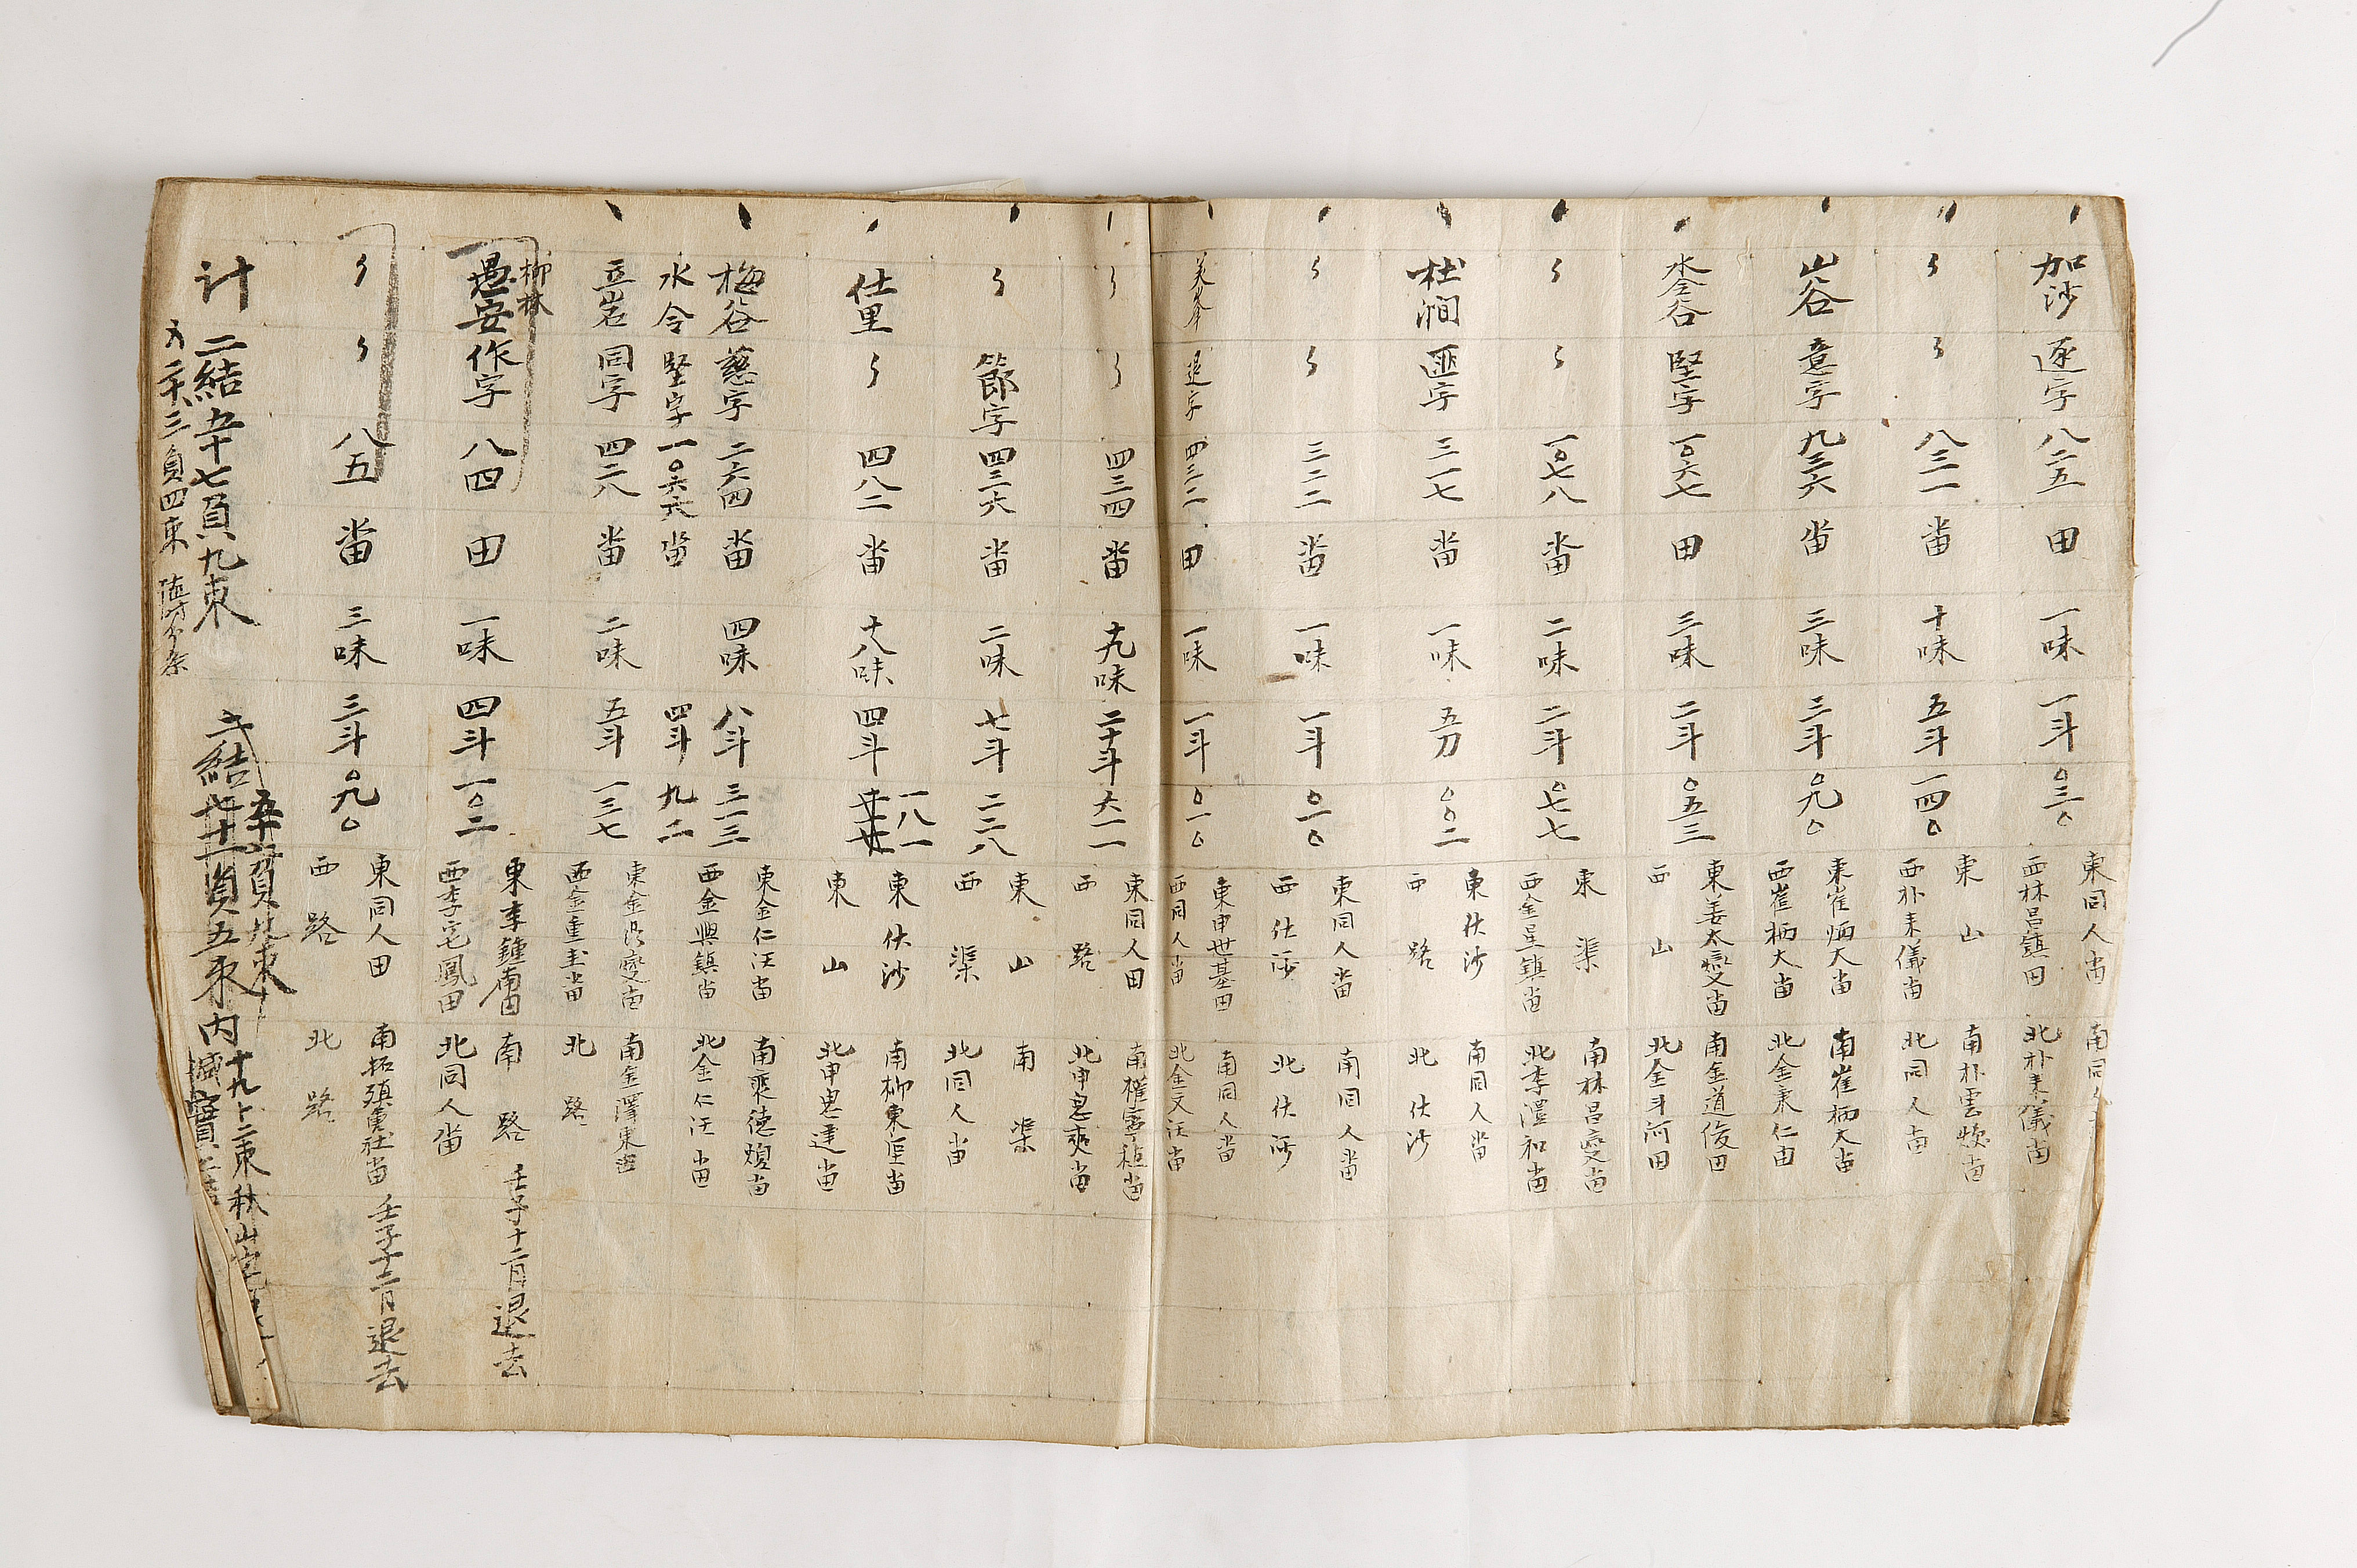 加沙 逐字 八二五 田 一味 一斗 〇三〇 東同人畓 西林呂鎮田 南同人 北朴来儀畓
〻 〻 八三一 畓 十味 五斗 一四〇 東山 西朴来儀畓 南朴雲 畓 北同人畓
山谷 意字 九三六 畓 三味 三斗 〇九〇 東崔炳大畓 西崔柄大畓 南崔柄大畓 北金秉仁田
水令谷 堅字 一〇六七 田 三味 二斗 〇五三 東姜太燮畓 西山 南金道俊田 北金斗河田
〻 〻 一〇七八 畓 二味 二斗 〇七七 東渠 西金呈鎮畓 南林呂燮畓 北李澧和畓
杜澗 匪字 三一七 畓 一味 五刀 〇〇二 東伏沙 西路 南同人畓 北伏沙
〻 〻 三二二 畓 一味 一斗 〇二〇 東同人畓 西伏沙 南同人畓 北伏沙
美峯 退字 四三二 田 一味 一斗 〇一〇 東申世基田 西同人畓 南同人畓 北金文汪畓
〻 〻 四三四 畓 十九味 二十斗 六一一 東同人田 西路 南權寧 畓 北申思爽畓
〻 節字 四三六 畓 二味 七斗 二二八 東山 西渠 南渠 北同人畓
仕里 〻 四八二 畓 十八味 四斗 一八一 東伏沙 東山 南柳東 畓 北申思達畓
梅谷 慈字 二六四 畓 四味 八斗 三一三 東金仁汪畓 西金興鎮畓 南裵德 畓 北金仁汪畓
水令 堅字 一〇六六 畓 四斗 九二
立岩 同字 四二八 畓 二味 五斗 一三七 東金 燮畓 西金重圭畓 南金澤東畓 北路
柳林
愚安 作字 八四 田 一味 四斗 一〇二 東李鍾南田 西李宅鳳田 南路 北同人畓 壬子十二月退去
〻 〻 八五 畓 三味 三斗 〇九〇 東同人田 西路 南拓殖會社畓 北路 壬子十二月退去
計 二結五十七負九束 二結七十一負五束內
三負四束